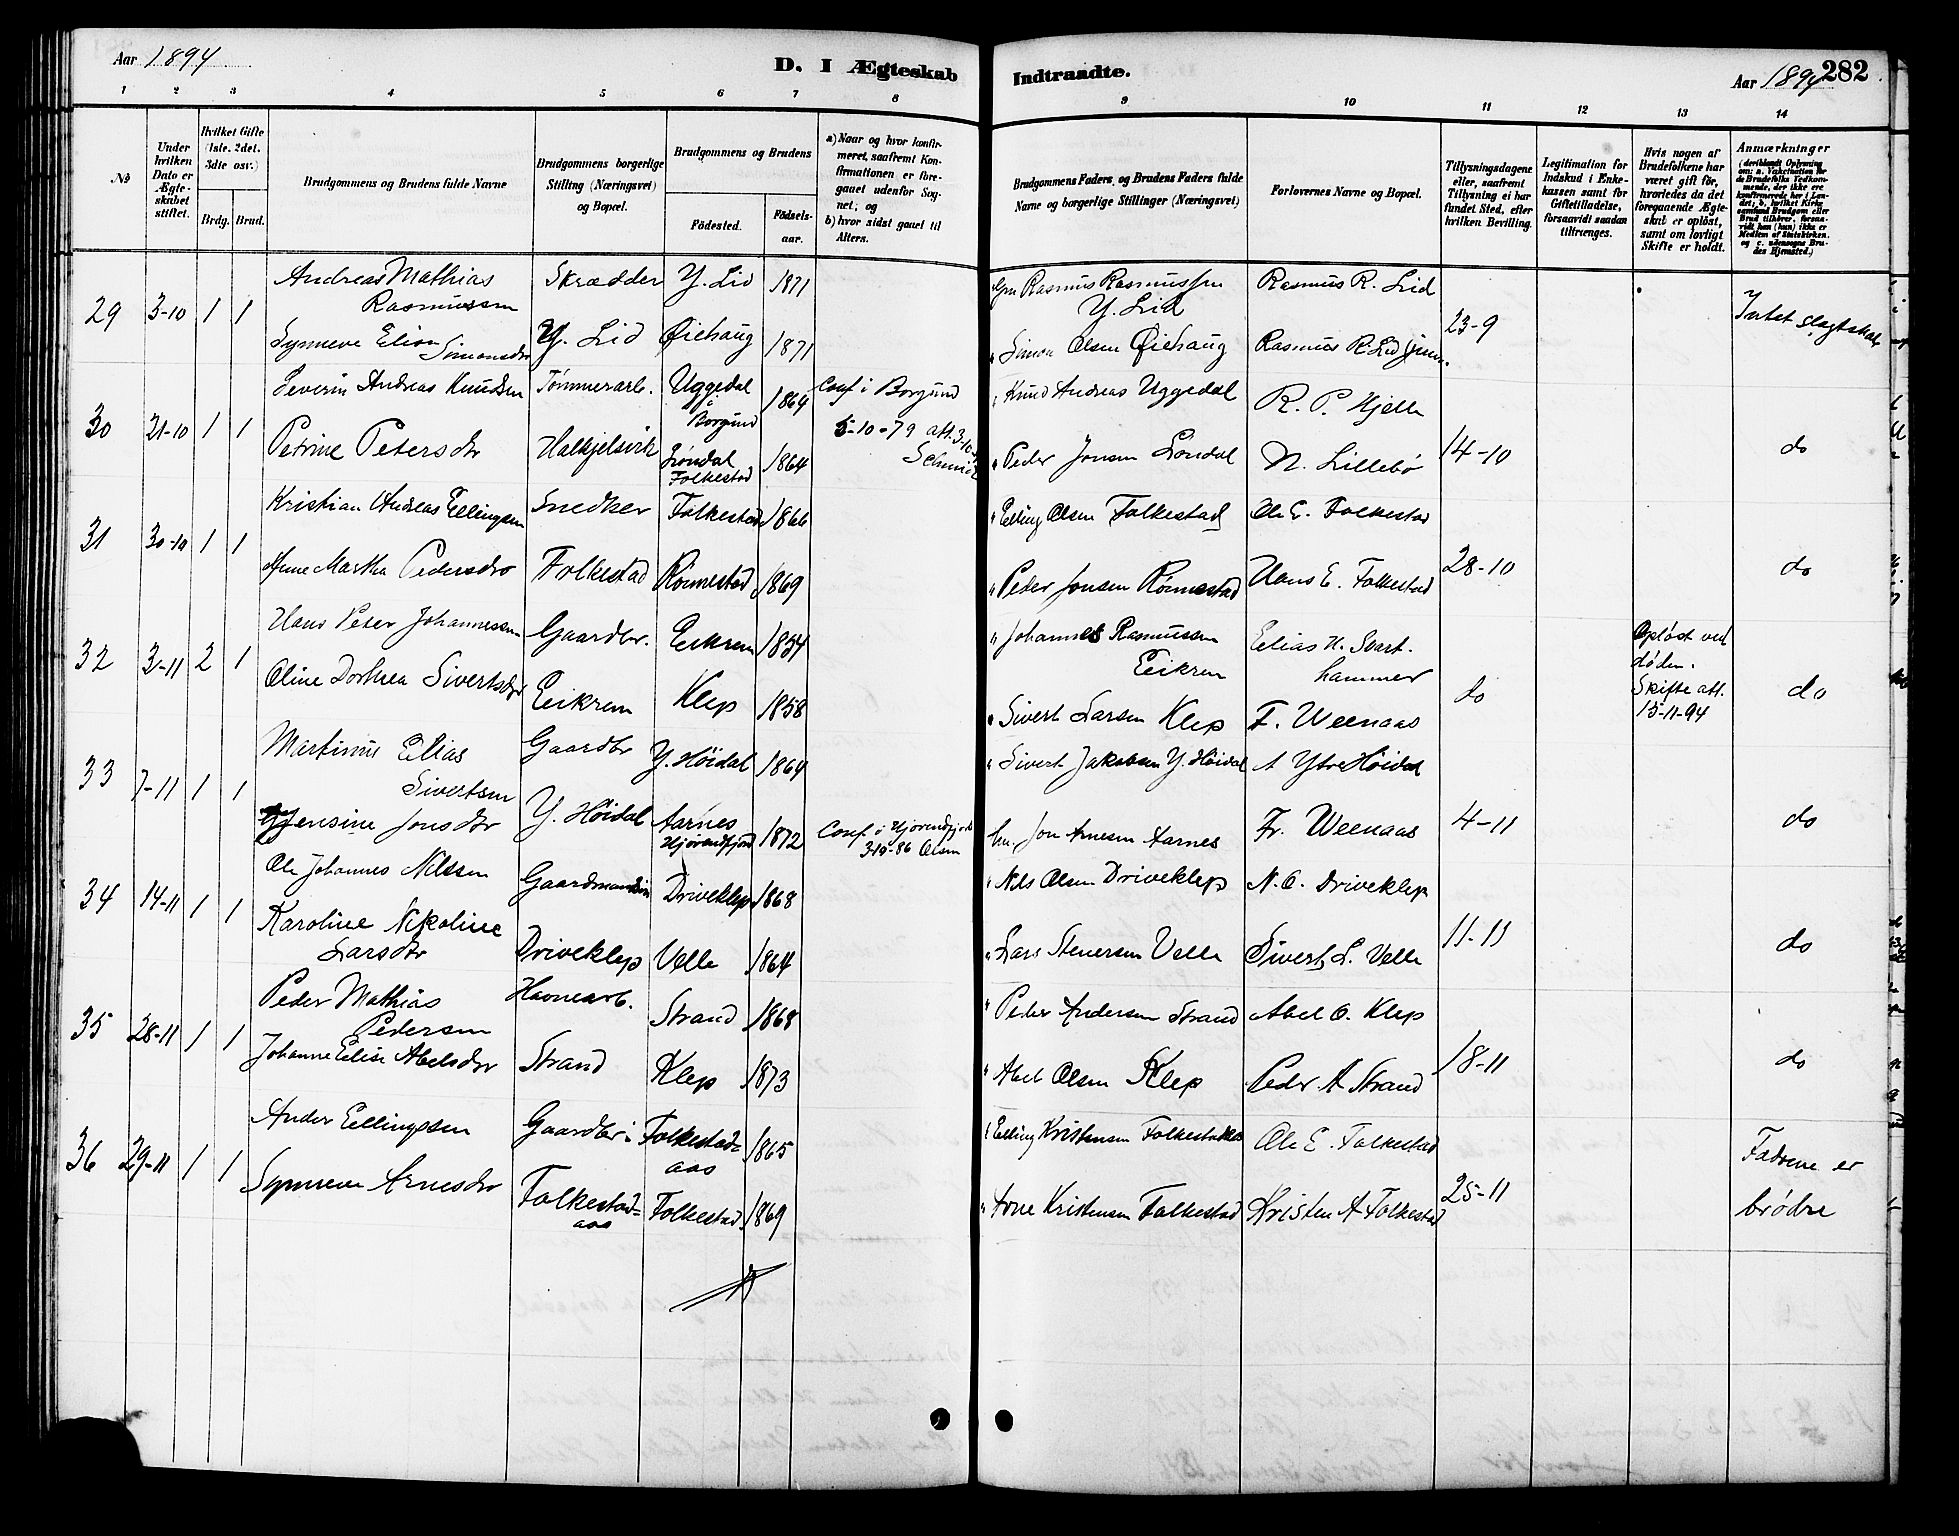 Aar 1894
D. I Ægteskab
Indtraadte.
Aar 1894
282
1 2 3 4 5 6 7 8 9 10 11 12 13 14
No
Under hvilken Dato er Ægteskabet stiftet.
Hvilket Gifte (1ste, 2det, 3die osv.)
Brdg. Brud.
Brudgommens og Brudens fulde Navne
Brudgommens borgerlige Stilling (Næringsvei) og Bopæl.
Brudgommens og Brudens
Fødested.
Fødselsaar.
a) Naar og hvor konfirmeret, saafremt Konfirmationen er foregaaet udenfor Sognet; og b) hvor sidst gaaet til Alters.
Brudgommens Faders, og Brudens Faders fulde Navne og borgerlige Stillinger (Næringsvei)
Forlovernes Navne og Bopæl.
Tillysningsdagene eller, saafremt Tillysning ei har fundet Sted, efter hvilken Bevilling.
Legitimation for Indskud i Enkekassen samt for Giftetilladelse, forsaavidt saadan tiltrænges.
Hvis nogen af Brudefolkene har været gift før, hvorledes da det foregaaende Ægteskab er opløst, samt om lovligt Skifte er holdt.
Anmærkninger
29 3-10 1 1
Andreas Mathias Rasmussen Skrædder Y. Lid 1871
Gm Rasmus Rasmussen Y. Lid Rasmus R. Lid
Synneve Elion Simonsdtr Y. Lid Øiehaug 1871
" Simon Olsen Øiehaug Rasmus R. Lid jun. 23-9 Intet slægtskab
30 21-10 1 1
Severin Andreas Knudsen Tømmerarb. Uggedal i Borgund 1864 Conf i Borgund 5-10-79 att. 3-10
" Knud Andreas Uggedal R. P. Hjelle
Petrine Petersdtr Halkjelsvik Folkestad 1864
" Peder Jonsen N. Lillebø 14-10 do
31 30-10 1 1
Kristian Andreas Ellingsen Snedker Folkestad 1866
" Elling Olsen Folkestad Ole E. Folkestad
Anne Martha Pedersdtr Folkestad Rønnestad 1869
" Peder Jonsen Rønnestad Hans E. Folkestad 28-10 do
32 3-11 2 1
Hans Peter Johannessen Gaardbr. Eikrem 1854
" Johannes Rasmussen Eikrem Elias H. Svarthammer
Opløst ved døden. Skifte att. 15-11-94
Oline Dorthea Sivertsdtr Eikrem Klep 1858
" Sivert Larsen Klep F. Weenaas do do
33 7-11 1 1
Martinus Elias Sivertsen Gaardbr Y. Høidal 1864
" Sivert Jakobsen Y. Høidal A Ytre Høidal
Jensine Jonsdtr Y. Høidal Aarnes Hjørendfjord 1872 Conf. i Hjørendfjord 3-10-86 Olsen
hu. Jon Arnesen Aarnes Fr. Weenaas 4-11 do
34 14-11 1 1
Ole Johannes Nilssen Gaardmandssøn Driveklep 1868
" Nils Olsen Driveklep N. O. Driveklep
Karoline Nikoline Larsdtr Driveklep Velle 1864
" Lars Stenersen Velle Sivert L. Velle 11-11 do
35 28-11 1 1
Peder Mathias Pedersen Havnearb. Strand 1868
" Peder Andersen Strand Abel O. Klep
Johanne Elise Abelsdtr Strand Klep 1873
" Abel Olsen Klep Peder A Strand 18-11 do
36 29-11 1 1
Anders Ellingsen Gaardbr i Folkestadaas 1865
" Elling Kristensen Folkestadaas Ole E. Folkestad
Synneve Arnesdtr Folkestadaas Folkestad 1869
" Arne Kristensen Folkestad Kristen A Folkestad 25-11 Fædrene er brødre